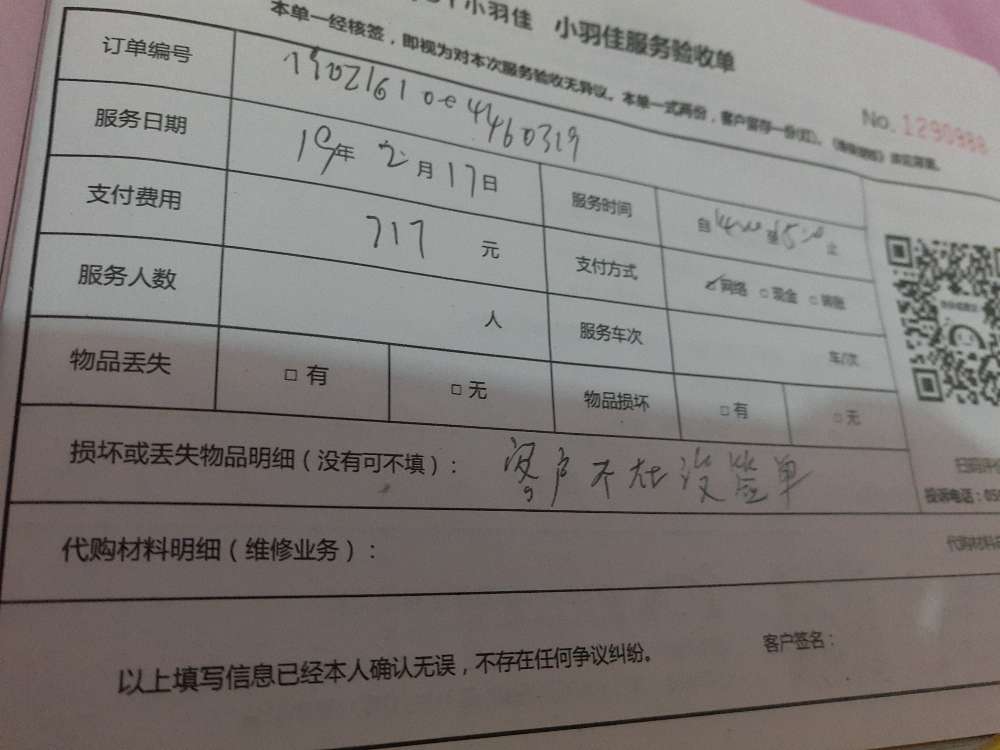 小羽佳 小羽佳服务验收单
本单一经核签，即视为对本次服务验收无异议。本单一式两份，客户留存一份(红)。
No. 1290988
订单编号
服务日期 19年 2月17日 服务时间 自14:00至15:00止
支付费用 717 元 支付方式 网络 □现金 □转账
服务人数 人 服务车次 车/次
物品丢失 □ 有 □ 无 物品损坏 □有 □无
损坏或丢失物品明细（没有可不填）： 客户不在没签单
投诉电话：05
代购材料明细（维修业务）：
代购材料
以上填写信息已经本人确认无误，不存在任何争议纠纷。 客户签名：